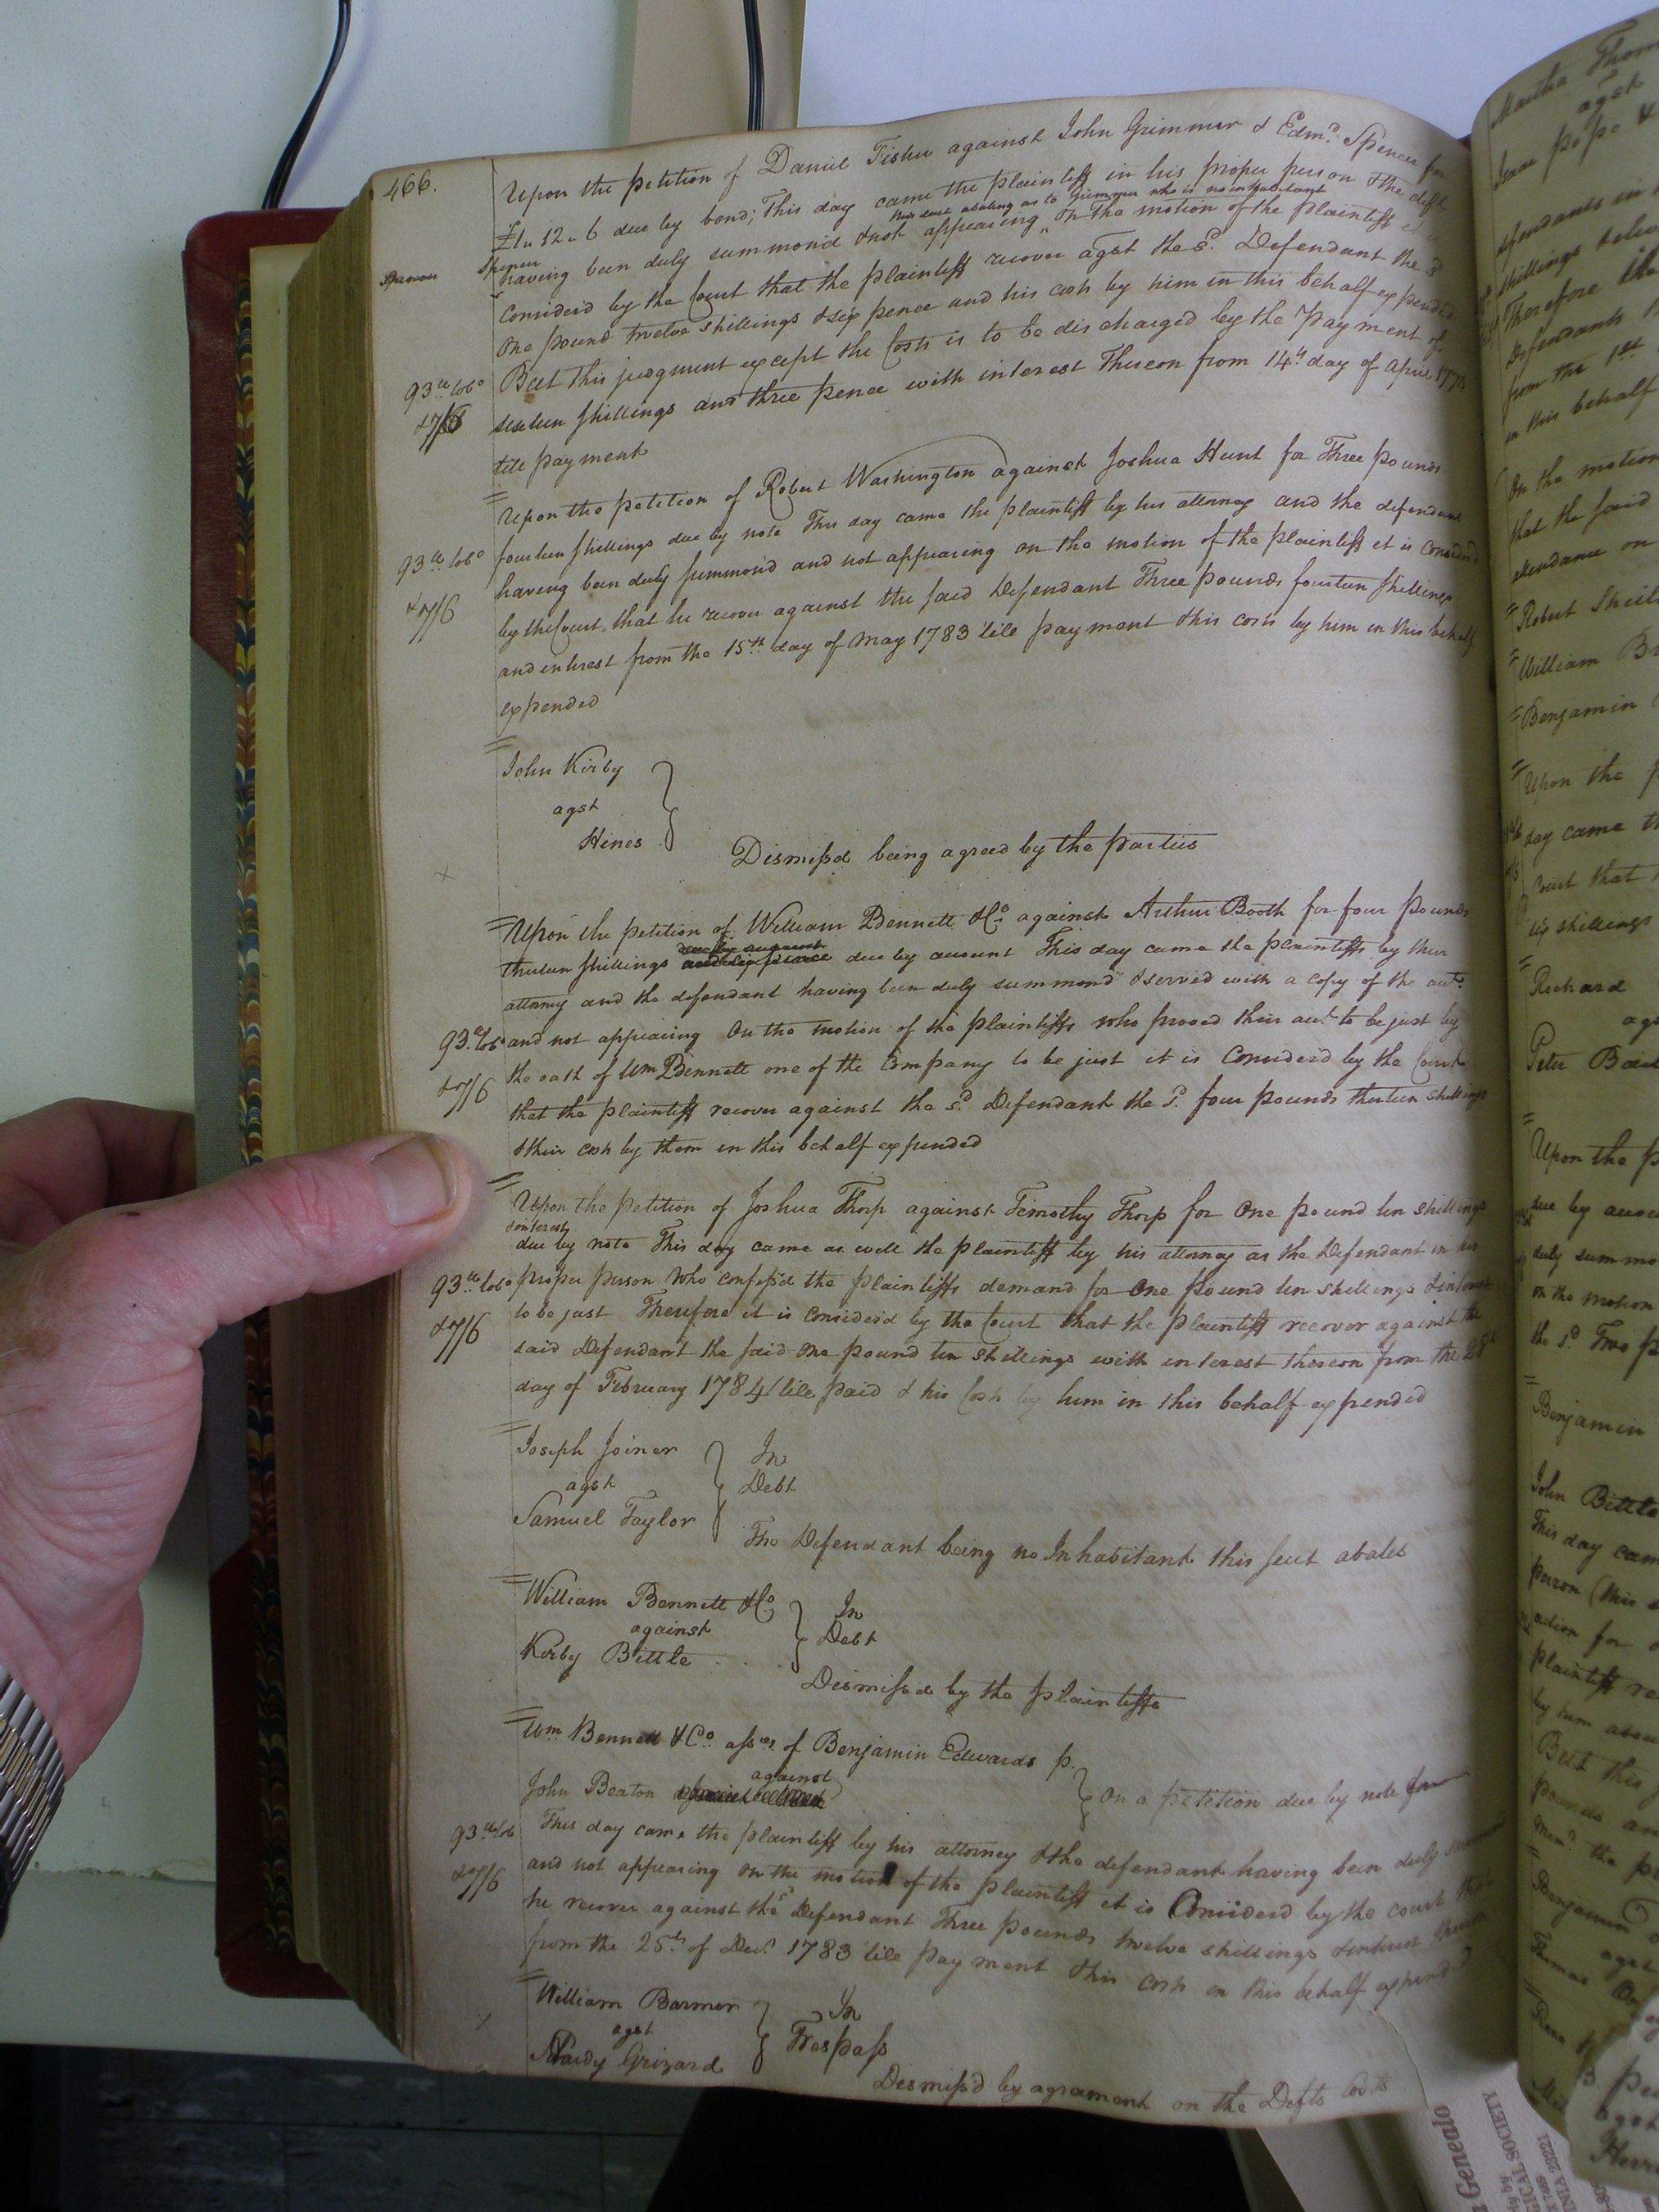 466.
Upon the petition of Daniel Fisher against John Grimmer & Edmd. Spencer for
£1.. 12.. 6 due by bond; This day came the plaintiff in his proper person & the deft
this suit abating as to Grimmer who is no inhabitant
Spencer having been duly summon'd & not appearing, On the motion of the plaintiff it is
Consider'd by the Court that the plaintiff recover agst the sd. Defendant the sd
One pound twelve shillings & six pence and his costs by him in this behalf expended
But this judgment except the Costs is to be discharged by the payment of
sixteen shillings and three pence with interest thereon from 14th day of April
till payment
93 tobo
&7/6
Upon the petition of Robert Washington against Joshua Hunt for Three pounds
fourteen shillings due by note This day came the plaintiff by his attorney and the defendant
having been duly summon'd and not appearing on the motion of the plaintiff it is Considered
by the Court, that he recover against the said Defendant Three pounds fourteen shillings
and interest from the 15th day of May 1783 till payment & his costs by him in this behalf
expended
93 tobo
&7/6
John Kirby
agst
Hines
Dismissd being agreed by the parties
Upon the petition of William Bennett & Co. against Arthur Booth for four pounds
thirteen shillings due by account This day came the plaintiffs by their
attorney and the defendant having been duly summond & served with a copy of the acct.
and not appearing On the motion of the plaintiffs who proved their acct. to be just by
the oath of Wm Bennett one of the Company to be just it is Considerd by the Court
that the plaintiff recover against the sd. Defendant the sd. four pounds thirteen shillings
& their costs by them in this behalf expended
93 tobo
&7/6
Upon the petition of Joshua Thorp against Timothy Thorp for One pound ten shillings
& interest
due by note This day came as well the plaintiff by his attorney as the Defendant in his
proper person who confess'd the plaintiffs demand for One pound ten shillings & interest
to be just Therefore it is consider'd by the Court that the plaintiff recover against the
said Defendant the said One pound ten shillings with interest thereon from the 28
day of February 1784 till paid & his Costs by him in this behalf expended
93 tobo
&7/6
Joseph Joiner
agst
Samuel Taylor
In
Debt
The Defendant being no Inhabitant this suit abates
William Bennett & Co.
against
Kirby Bittle
In
Debt
Dismissd by the plaintiffs
Wm Bennett & Co. assees. of Benjamin Edwards p.
against
John Beaton
On a petition due by note for
This day came the plaintiff by his attorney & the defendant having been duly
and not appearing On the motion of the plaintiff it is Considerd by the court that
he recover against the sd Defendant Three pounds twelve shillings & interest thereon
from the 25th of Decr. 1783 till payment & his costs in this behalf expended
93 tob
&7/6
William Barmer
agst
Hardy Grizard
In
Trespass
Dismiss'd by agreament on the Defts Costs
Martha
agst
Isaac pope &
shillings
Therefore the
Defendants
from the 1st
in this behalf
On the motion
that the said
attendance on
Robert
William
Benjamin
Upon the
day came
Court that
six shillings
Richard
Peter
Upon the
due by
duly
on the motion
the sd. Two
Benjamin
John Bittle
This day came
person (this
action for
plaintiff
by him
But this
pounds
the
Benjamin
agst
ICAL SOCIETY
NIA 23221